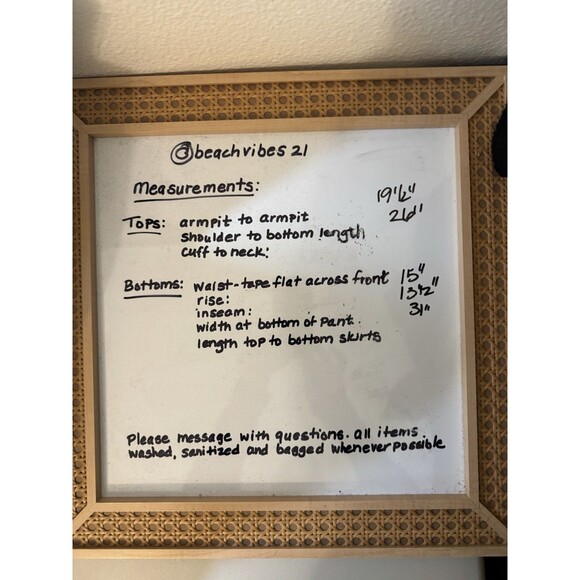 @beachvibes21
Measurements:
Tops: armpit to armpit 19½"
shoulder to bottom length 26"
cuff to neck:
Bottoms: waist-tape flat across front 15"
rise: 13½"
inseam: 31"
width at bottom of pant.
length top to bottom skirts
Please message with questions. all items
washed, sanitized and bagged whenever possible